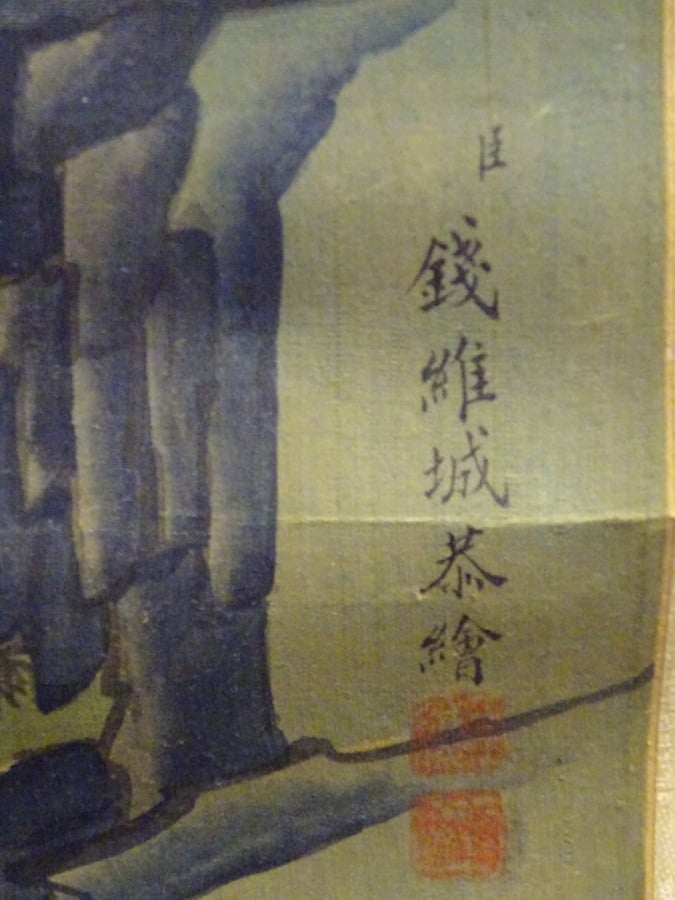 臣錢維城恭繪